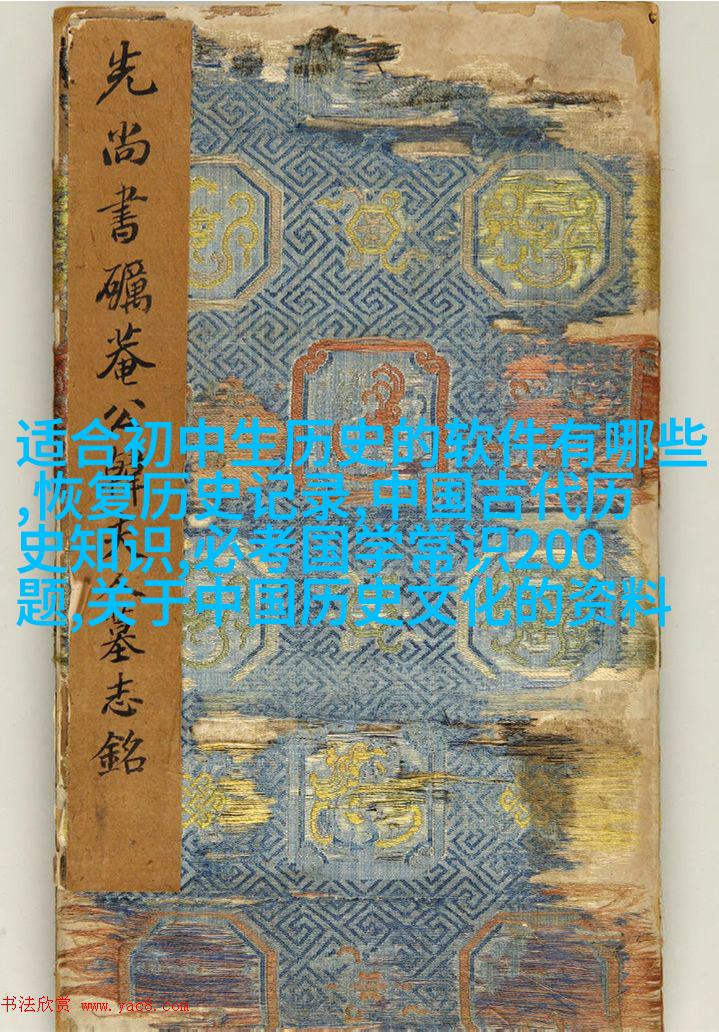 先尚書礪菴公墓志銘
适合初中生历史的软件有哪些
,恢复历史记录,中国古代历
史知识,必考国学常识200
题,关于中国历史文化的资料
书法欣赏 www.yac8.com